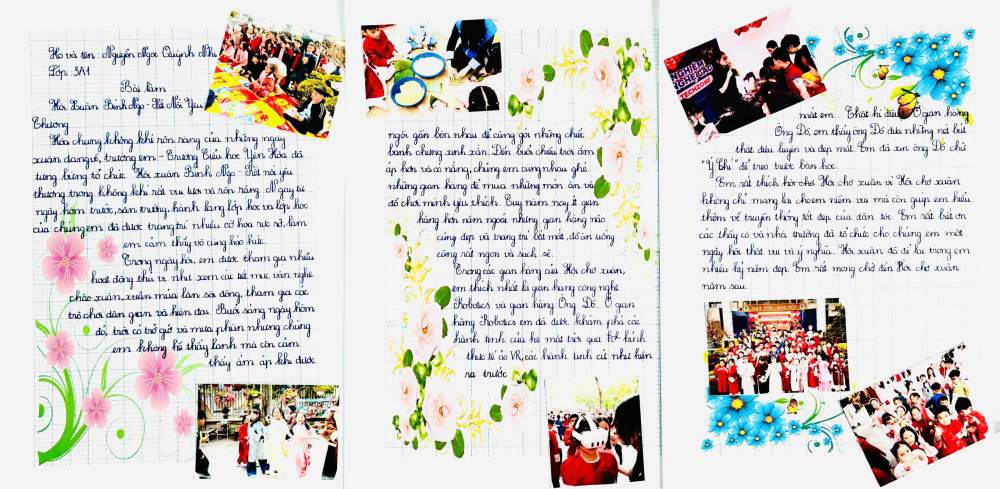 Họ và tên: Nguyễn Ngọc Quỳnh Nhi
Lớp: 3A1
Bài làm
Hội Xuân Bính Ngọ - Kết Nối Yêu
Thương
Hòa chung không khí rộn ràng của những ngày
xuân đang về, trường em - Trường Tiểu học Yên Hòa đã
tưng bừng tổ chức Hội xuân Bính Ngọ - Kết nối yêu
thương trong không khí rất vui tươi và rộn ràng. Ngay từ
ngày hôm trước, sân trường, hành lang lớp học và lớp học
của chúng em đã được trang trí nhiều cờ hoa rực rỡ, làm
em cảm thấy vô cùng háo hức.
Trong ngày hội, em được tham gia nhiều
hoạt động thú vị như xem các tiết mục văn nghệ
chào xuân, xem múa lân sôi động, tham gia các
trò chơi dân gian và hiện đại. Buổi sáng ngày hôm
đó, trời có trở gió và mưa phùn nhưng chúng
em không hề thấy lạnh mà còn cảm
thấy ấm áp khi được
ngồi gần bên nhau để cùng gói những chiếc
bánh chưng xinh xắn. Đến buổi chiều trời ấm
áp hơn và có nắng, chúng em cùng nhau ghé
những gian hàng để mua những món ăn và
đồ chơi mình yêu thích. Tuy năm nay ít gian
hàng hơn năm ngoái nhưng gian hàng nào
cũng đẹp và trang trí bắt mắt, đồ ăn uống
cũng rất ngon và sạch sẽ.
Trong các gian hàng của Hội chợ xuân,
em thích nhất là gian hàng công nghệ
Robotics và gian hàng Ông Đồ. Ở gian
hàng Robotics em đã được khám phá các
hành tinh của hệ mặt trời qua kính
thực tế ảo VR, các hành tinh cứ như hiện
ra trước
NGHIỆM
NGHỆ CAO
TECHZONE
mắt em. Thật kì diệu! Ở gian hàng
Ông Đồ, em thấy ông Đồ đưa những nét bút
thật điêu luyện và đẹp mắt. Em đã xin ông Đồ chữ
"Ý Chí" để treo trước bàn học.
Em rất thích hội chợ Hội chợ xuân vì Hội chợ xuân
không chỉ mang lại cho em niềm vui mà còn giúp em hiểu
thêm về truyền thống tốt đẹp của dân tộc. Em rất biết ơn
các thầy cô và nhà trường đã tổ chức cho chúng em một
ngày hội thật vui và ý nghĩa. Hội xuân đã để lại trong em
nhiều kỷ niệm đẹp. Em rất mong chờ đến Hội chợ xuân
năm sau.